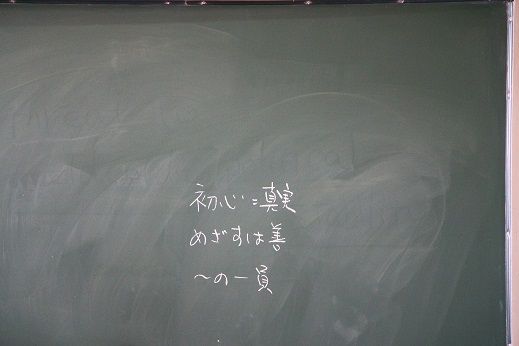 初心：真実
めざすは善
～の一員